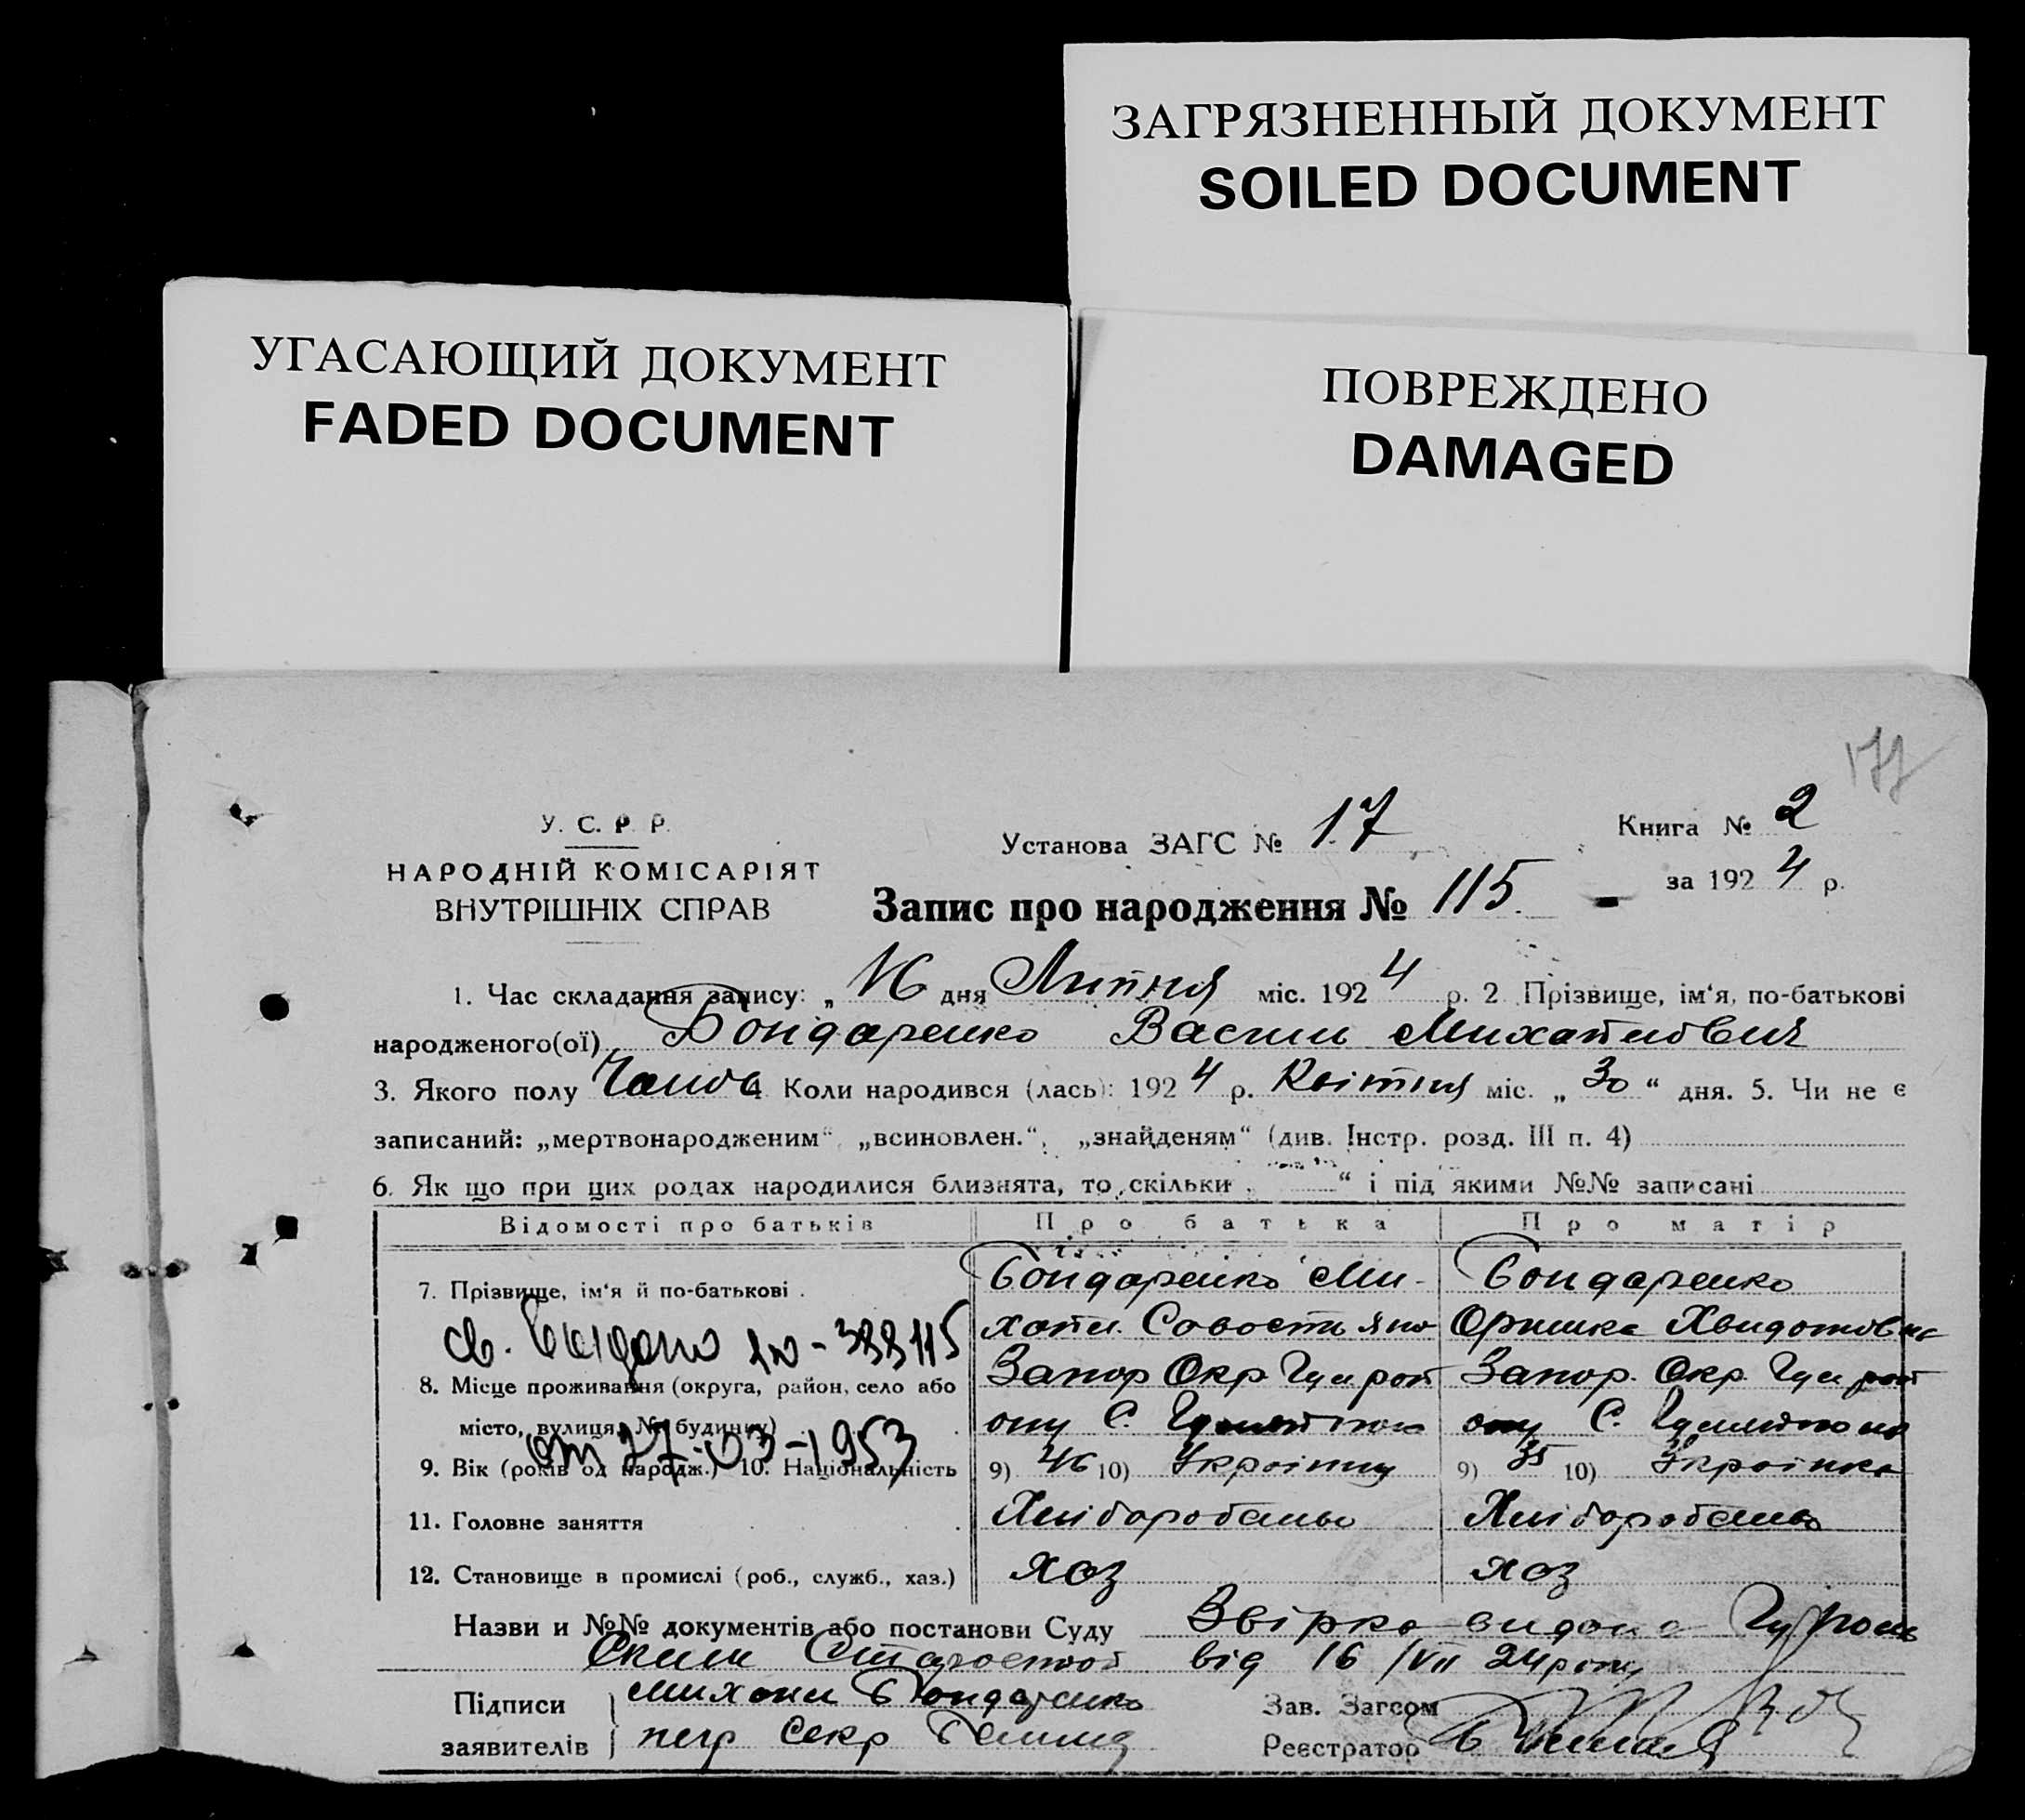 ЗАГРЯЗНЕННЫЙ ДОКУМЕНТ
SOILED DOCUMENT
УГАСАЮЩИЙ ДОКУМЕНТ
FADED DOCUMENT
ПОВРЕЖДЕНО
DAMAGED
177
У. С. Р. Р.
НАРОДНІЙ КОМІСАРІЯТ
ВНУТРІШНІХ СПРАВ
Установа ЗАГС № 17
Книга № 2
за 1924 р.
Запис про народження № 115
1. Час складання запису: „16 дня Липня міс. 1924 р. 2 Прізвище, ім'я, по-батькові
народженого(ої) Бондаренко Васили Михайлович
3. Якого полу Чолов 4 Коли народився (лась): 1924 р. Квітня міс. „30“ дня. 5. Чи не є
записаний: „мертвонародженим“, „всиновлен.“, „знайденям“ (див. Інстр. розд. III п. 4)
6. Як що при цих родах народилися близнята, то скільки „ “ і під якими №№ записані
Відомості про батьків Про батька Про матір
7. Прізвище, ім'я й по-батькові . Бондаренко Ми- Бондаренко
хайл. Оришка
8. Місце проживання (округа, район, село або Запор Окр. Запор. Окр.
місто, вулиця, № будинку) ону С. ону С.
от 27-03-1953
9. Вік (років од народж.) 10. Національність 9) 46 10) Україниц 9) 35 10) Українка
11. Головне заняття Хліборобство Хліборобство
12. Становище в промислі (роб., служб., хаз.) хоз хоз
Назви и №№ документів або постанови Суду видана
від 16/VII 24 року
Підписи Михайл Бондаренко Зав. Загсом
заявителів секр Реєстратор